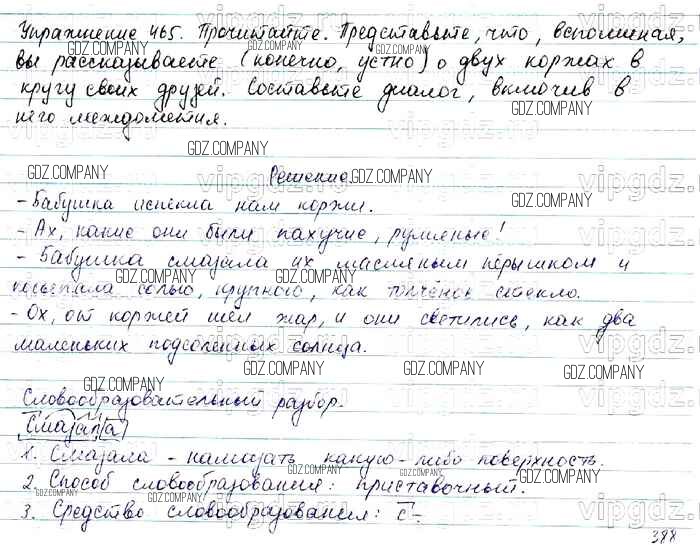 Упражнение 465. Прочитайте. Представьте, что, вспоминая,
вы рассказываете (конечно, устно) о двух коржах в
кругу своих друзей. Составьте диалог, включив в
него междометия.
Решение.
- Бабушка испекла нам коржи.
- Ах, какие они были пахучие, румяные!
- Бабушка смазала их масляным пёрышком и
посыпала солью, крупною, как толчёное стекло.
- Ох, от коржей шёл жар, и они светились, как два
маленьких подсоленных солнца.
Словообразовательный разбор.
Смазала
1. Смазала - намазать какую-либо поверхность.
2. Способ словообразования: приставочный.
3. Средство словообразования: с-.
388